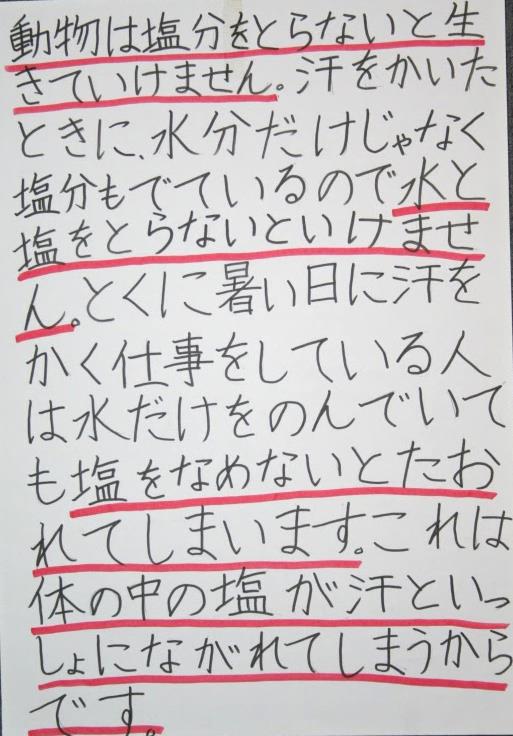 動物は塩分をとらないと生
きていけません。汗をかいた
ときに、水分だけじゃなく
塩分もでているので水と
塩をとらないといけませ
ん。とくに暑い日に汗を
かく仕事をしている人
は水だけをのんでいて
も塩をなめないとたお
れてしまいます。これは
体の中の塩が汗といっ
しょにながれてしまうから
です。